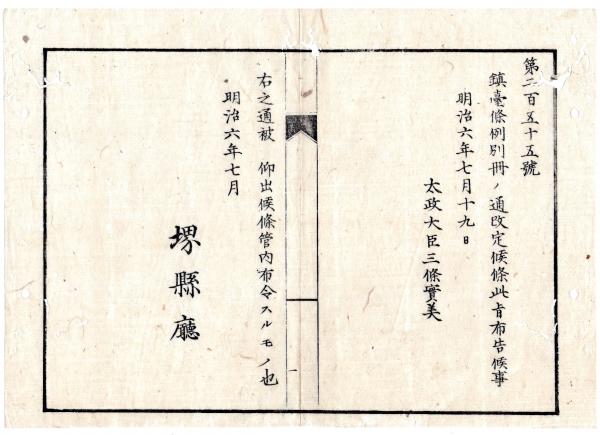 第二百五十五號
鎮臺條例別冊ノ通改定候條此旨布告候事
明治六年七月十九日
太政大臣三條實美
右之通被　仰出候條管内布令スルモノ也
明治六年七月
堺縣廳